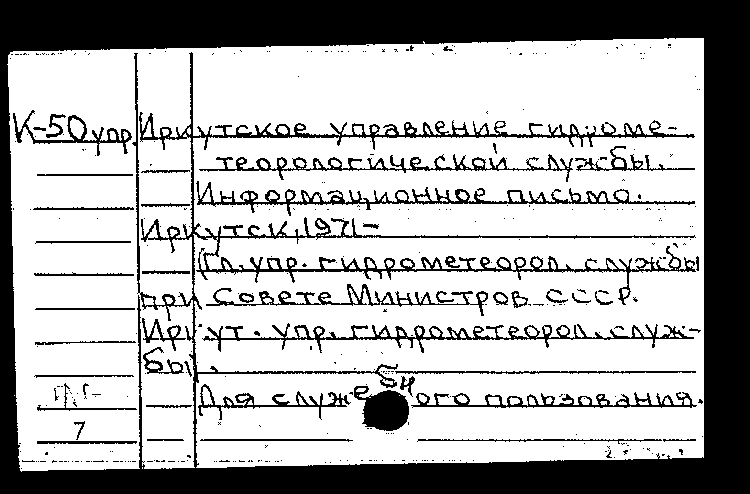 К-50 упр. Иркутское управление гидроме-
теорологической службы.
Информационное письмо.
Иркутск, 1971-
(Гл. упр. гидрометеорол. службы
при Совете Министров СССР.
Иркут. упр. гидрометеорол. служ-
бы).
Для служебного пользования.
7